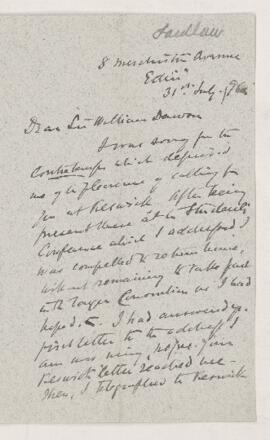 Laidlaw
8 Merchiston Avenue
Edinr
31st July
Dear Sir William Dawson
I was sorry for the
Contretemps which deprived
me of the pleasure of calling for
you at Keswick. After being
present there at the Students
Conference which I addressed, I
was compelled to return home,
without remaining to take part
in the larger Convention as I had
hoped. I had answered yr.
first letter to the address I
am now using, before your
Keswick letter reached me.
Then, I telegraphed to Keswick